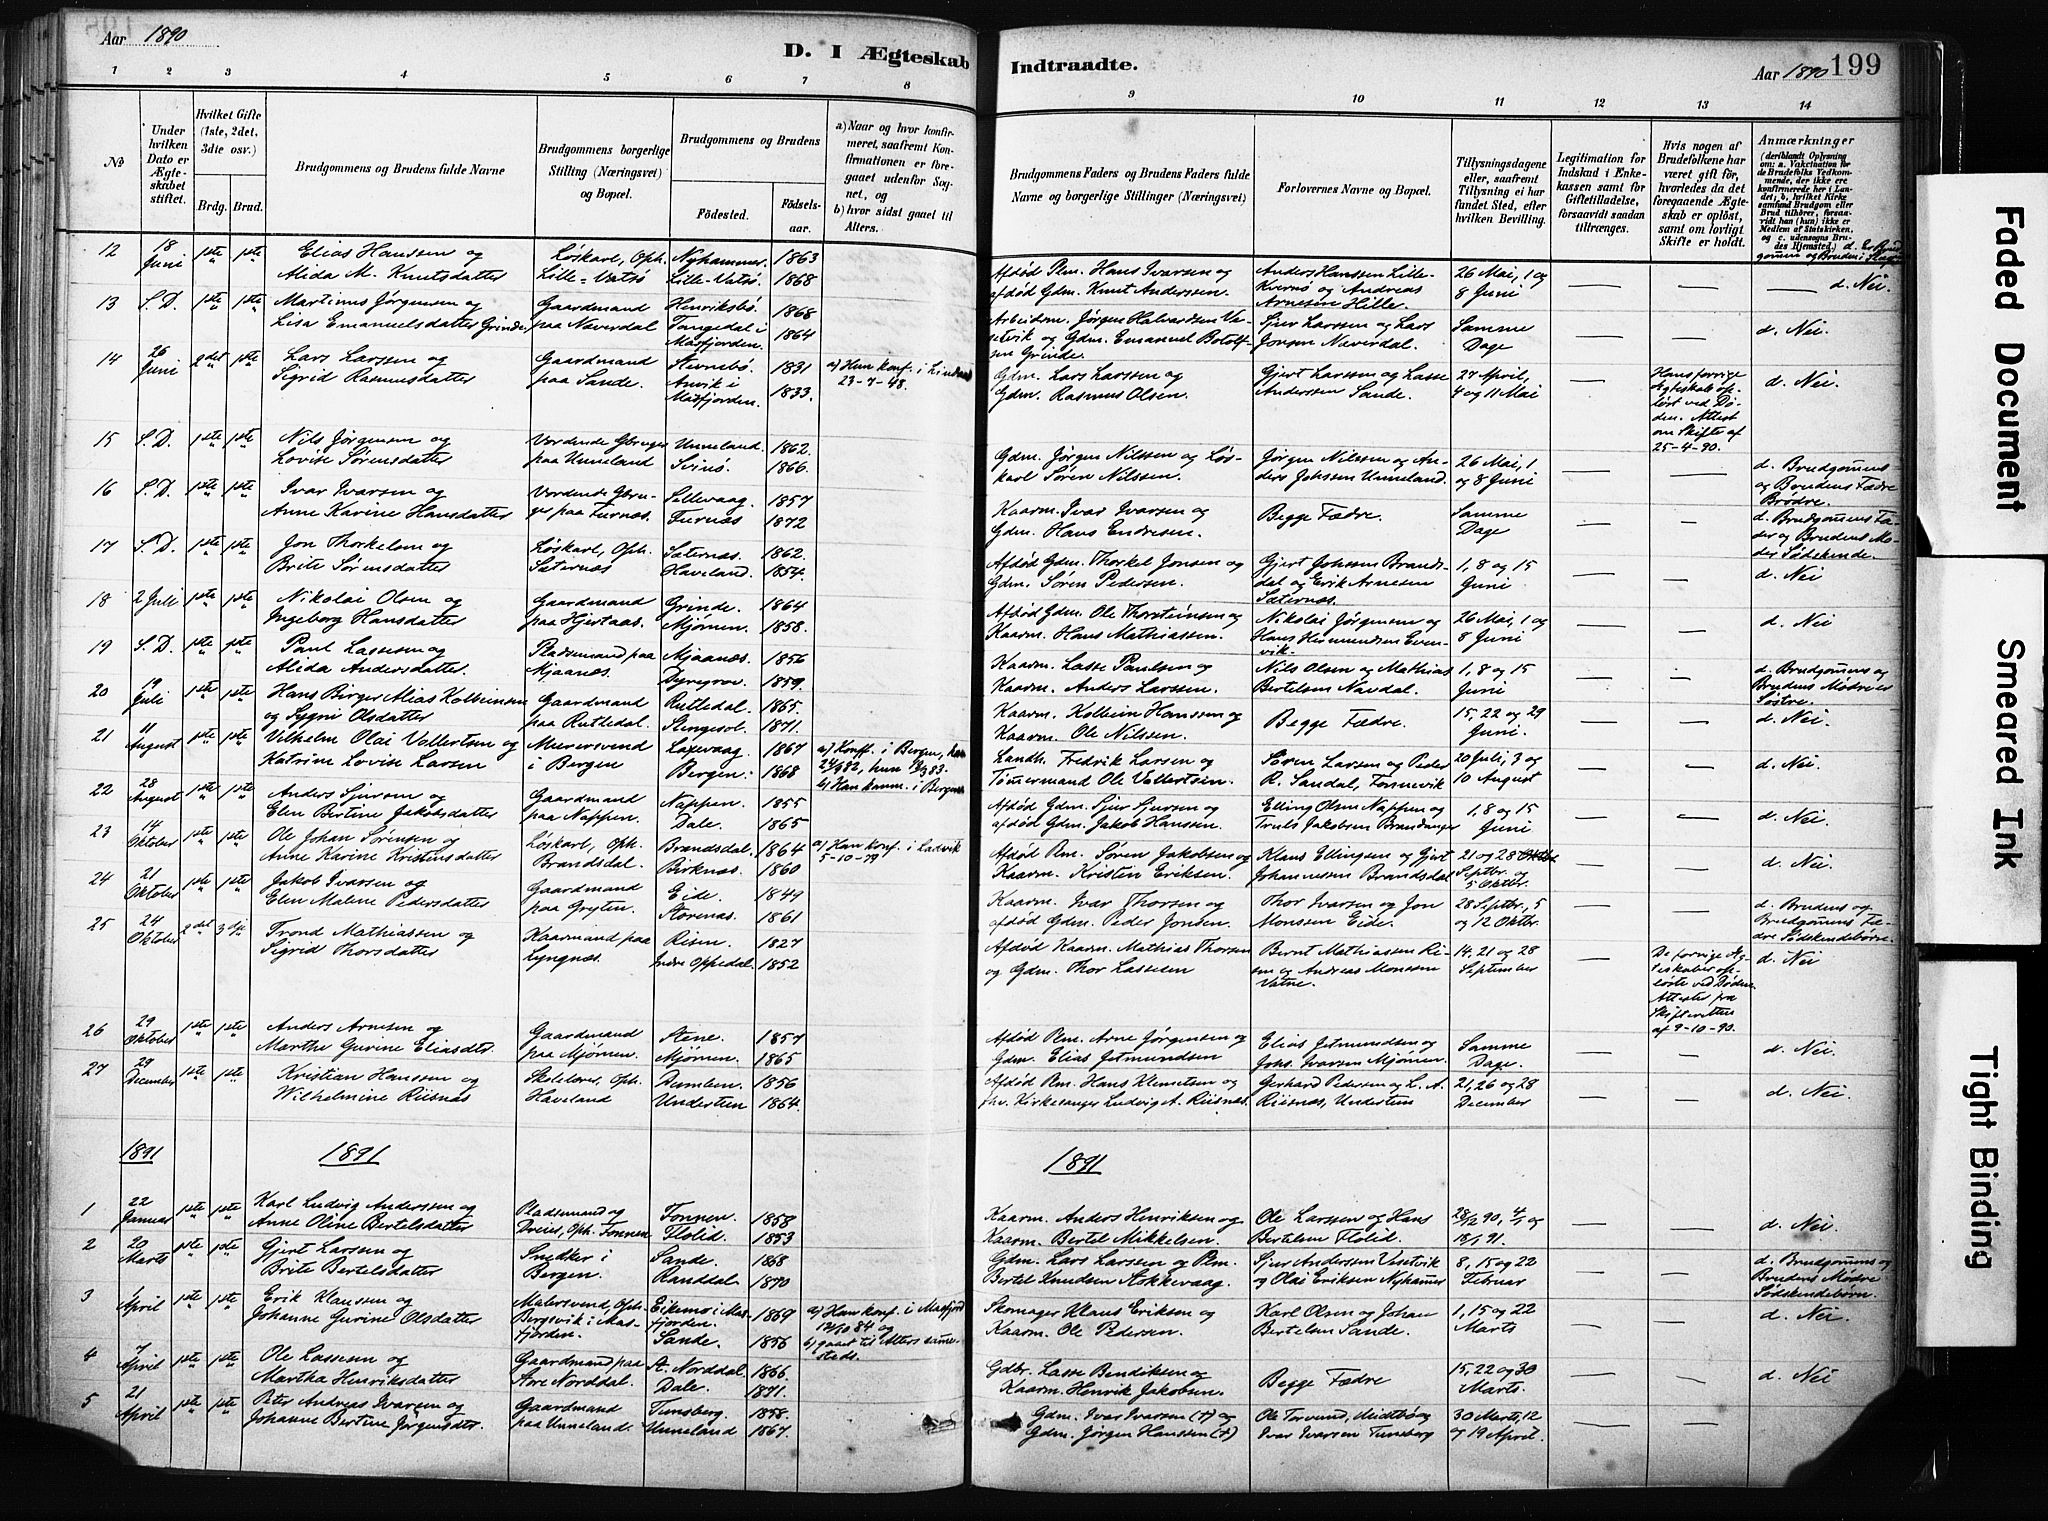 Aar 1890
D. I Ægteskab
Indtraadte.
Aar 1890
199
1 2 3 4 5 6 7 8
9 10 11 12 13 14
No
Under hvilken Dato er Ægteskabet stiftet.
Hvilket Gifte (1ste, 2det, 3die osv.)
Brdg. Brud.
Brudgommens og Brudens fulde Navne
Brudgommens borgerlige Stilling (Næringsvei) og Bopæl.
Brudgommens og Brudens
Fødested.
Fødselsaar.
a) Naar og hvor konfirmeret, saafremt Konfirmationen er foregaaet udenfor Sognet, og
b) hvor sidst gaaet til Alters.
Brudgommens Faders og Brudens Faders fulde Navne og borgerlige Stillinger (Næringsvei)
Forlovernes Navne og Bopæl.
Tillysningsdagene eller, saafremt Tillysning ei har fundet Sted, efter hvilken Bevilling.
Legitimation for Indskud i Enkekassen samt for Giftetilladelse, forsaavidt saadan tiltrænges.
Hvis nogen af Brudefolkene har været gift før, hvorledes da det foregaaende Ægteskab er opløst, samt om lovligt Skifte er holdt.
Anmærkninger
12 18 Juni 1ste 1ste Elias Hanssen og Alida M. Knutsdatter Løskarl, Oph. Lille-Vatsø Nyhammer 1863 Lille-Vatsø 1868 Afdød Plm. Hans Ivarsen og afdød Gdm. Knut Anderssen. Anders Hanssen Lille-Kversø og Andreas Arnesen Hille 26 Mai, 1 og 8 Juni — — d. Nei.
13 S. D. 1ste 1ste Martinus Jørgensen og Lisa Emanuelsdatter Grinde Gaardmand paa Naverdal Henriksbø 1868 Tangedal i Masfjorden 1864 Arbeidsm. Jørgen Halvardsen og Gdm. Emanuel Botolfsen Grinde. Sjur Larssen og Lars Jonsen Naverdal. Samme Dage — — d. Nei.
14 26 Juni 2det 1ste Lars Larssen og Sigrid Rasmusdatter Gaardmand paa Sande. Stevnebø. 1831 Anvik i Masfjorden. 1833. a) Hun konf. i 23-7-48. Gdm. Lars Larssen og Gdm. Rasmus Olsen Gjert Larssen og Lasse Anderssen Sande. 27 April, 4 og 11 Mai — Hans forrige Ægteskab opløst ved Døden. Attest om Skifte af 25-4-90. d. Nei
15 S. D. 1ste 1ste Nils Jørgensen og Lovise Sørensdatter Vordende Gbruger paa Unneland Unneland. 1862. Svinø. 1866. Gdm. Jørgen Nilssen og Løskarl Søren Nilssen. Jørgen Nilssen og Anders Johssen Unneland. 26 Mai, 1 og 8 Juni — — d. Brudgommens og Brudens Fædre Brødre.
16 S. D. 1ste 1ste Ivar Ivarsen og Anne Karine Hansdatter Vordende Gbruger paa Furnæs. Sellevaag. 1857 Furnæs 1872 Kaarm. Ivar Ivarsen og Gdm. Hans Endresen. Begge Fædre. Samme Dage — — d. Brudgommens Fader og Brudens Moder Sødskende.
17 S. D. 1ste 1ste Jon Thorkelsen og Brite Sørensdatter Løskarl, Oph. Sæternæs Sæternæs. 1862. Haveland. 1854. Afdød Gdm. Thorkel Jonsen og Gdm. Søren Pedersen. Gjert Johssen Brandsdal og Erik Arnesen Sæternæs. 1, 8 og 15 Juni — — d. Nei
18 2 Juli 1ste 1ste Nikolai Olsen og Ingeborg Hansdatter Gaardmand paa Hjertaas. Grinde. 1864 Mjømen. 1858. Afdød Gdm. Ole Thorsteinsen og Kaarm. Hans Mathiassen. Nikolai Jørgensen og Hans 26 Mai, 1 og 8 Juni — — d. Nei
19 S. D. 1ste 1ste Paul Lassesen og Alida Andersdatter. Pladsmand paa Mjaanæs. Mjaanæs. 1856 1859. Kaarm. Lasse Paulsen og Kaarm. Anders Larssen. Nils Olsen og Mathias Bertelsen Navdal. 1, 8 og 15 Juni — — d. Brudgommens og Brudens Mødre er Søstre.
20 19 Juli 1ste 1ste Hans Berger Alias Kolbeinsen og Sygni Olsdatter Gaardmand paa Rutledal. Rutledal 1865. Stengesol. 1871. Kaarm. Kolbein Hanssen og Kaarm. Ole Nilssen. Begge Fædre. 15, 22 og 29 Juni. — — d. Nei
21 11 August 1ste 1ste Vilhelm Olai Vollertsen og Katrine Lovise Larsen Murersvend i Bergen Laxevaag 1867 Bergen. 1868 a) Konf. i Bergen, han 24/9 82, hun 83. b) Han komm. i Bergen Landh. Fredrik Larsen og Tømmermand Ole Vollertsen. Søren Larsen og Peder R. Sandal, Tonnevik 20 Juli, 3 og 10 August — — d. Nei.
22 28 August 1ste 1ste Anders Sjursen og Elen Bertine Jakobsdatter Gaardmand paa Nappen. Nappen. 1855 Dale. 1865 Afdød Gdm. Sjur Sjursen og afdød Gdm. Jakob Hanssen. Elling Olsen Nappen og Truls Jakobsen Brandanger 1, 8 og 15 Juni — — d. Nei.
23 14 Oktober 1ste 1ste Ole Johan Sørensen og Anne Karine Kristensdatter Løskarl, Oph. Brandsdal. Brandsdal. 1864 Birknæs. 1860 a) Han konf. i Ladvik 5-10-79 Afdød Plm. Søren Jakobsen og Kaarm. Kristen Eriksen. Klaus Ellingsen og Gjert Johannessen Brandsdal 21 og 28 Septbr. og 5 Oktbr. — — d. Nei.
24 21 Oktober 1ste 1ste Jakob Ivarsen og Elen Malene Pedersdatter Gaardmand paa Grytén. Eide. 1849 Storenæs. 1861 Kaarm. Ivar Thorsen og afdød Gdm. Peder Jonsen Thor Ivarsen og Jon Monssen Eide. 28 Septbr., 5 og 12 Oktbr. — — d. Brudens og Brudgommens Fædre Sødskendebørn.
25 24 Oktober 2det 3die Trond Mathiassen og Sigrid Thorsdatter Kaarmand paa Lyngnæs. Risen. 1827 Indre Oppedal. 1852 Afdød Kaarm. Mathias Thorsen og Gdm. Thor Lassesen Bernt Mathiassen Risen og Andreas Monssen Vatne. 14, 21 og 28 September — De forrige Ægteskaber opløste ved Døden. Attester fra Skifteretten af 9-10-90. d. Nei
26 29 Oktober 1ste 1ste Anders Arnesen og Marthe Gurine Eliasdtr. Gaardmand paa Mjømen. Stene. 1857 Mjømen. 1865 Afdød Plm. Arne Jørgensen og Gdm. Elias Jetmundsen Elias Jetmundsen og Johs. Ivarsen Mjømen. Samme Dage. — — d. Nei.
27 29 December 1ste 1ste Kristian Hanssen og Wilhelmine Riisnæs Skolelærer, Oph. Haveland Dumben. 1856 Undertun 1864. Afdød Plm. Hans Klemetsen og fhv. Kirkesanger Ludvig A. Riisnæs. Gerhard Pedersen og L. A. Riisnæs, Undertun 21, 26 og 28 December — — d. Nei.
1891 1891 1891
1 22 Januar 1ste 1ste Karl Ludvig Anderssen og Anne Oline Bertelsdatter Pladsmand og Dreier, Oph. Tonnen Tonnen. 1858 Flolid. 1853 Kaarm. Anders Henriksen og Kaarm. Bertel Mikkelsen. Ole Larssen og Hans Bertelsen Flolid. 28/12 90, 4/1 og 18/1 91. — — d. Nei.
2 20 Marts 1ste 1ste Gjert Larssen og Brite Bertelsdatter Snedker i Bergen. Sande. 1868 Randdal. 1870 Gdm. Lars Larssen og Plm. Bertel Knudsen Akkevaag. Sjur Anderssen og Olai Eriksen Nyhamer 8, 15 og 22 Februar — — d. Brudgommens og Brudens Mødre Sødskendebørn.
3 April 1ste 1ste Erik Klaussen og Johanne Gurine Olsdatter Malersvend, Oph. Bergsvik i Masfjorden. Eikemo i Masfjorden. 1869 Sande. 1856 a) Han konf. i Masfjord 12/10 84 og b) gaaet til Alters sammesteds. Skomager Klaus Eriksen og Kaarm. Ole Pedersen. Karl Olsen og Johan Bertelsen Sande. 1, 15 og 22 Marts — — d. Nei.
4 7 April 1ste 1ste Ole Lassesen og Martha Henriksdatter Gaardmand paa Aare Norddal. A. Norddal. 1866. Dale. 1871. Gdbr. Lasse Bendiksen og Kaarm. Henrik Jakobsen. Begge Fædre 15, 22 og 30 Marts. — — d. Nei
5 21 April 1ste 1ste Peter Andreas Ivarsen og Johanne Bertine Jørgensdtr. Gaardmand paa Unneland. Tunsberg. 1858. Unneland 1867. Gdm. Ivar Ivarsen (+) og Gdm. Jørgen Hanssen (+) Ole Torvund, Midtbø og Ivar Ivarsen Tunsberg 30 Marts, 12 og 19 April.
Faded Document
Smeared Ink
Tight Binding